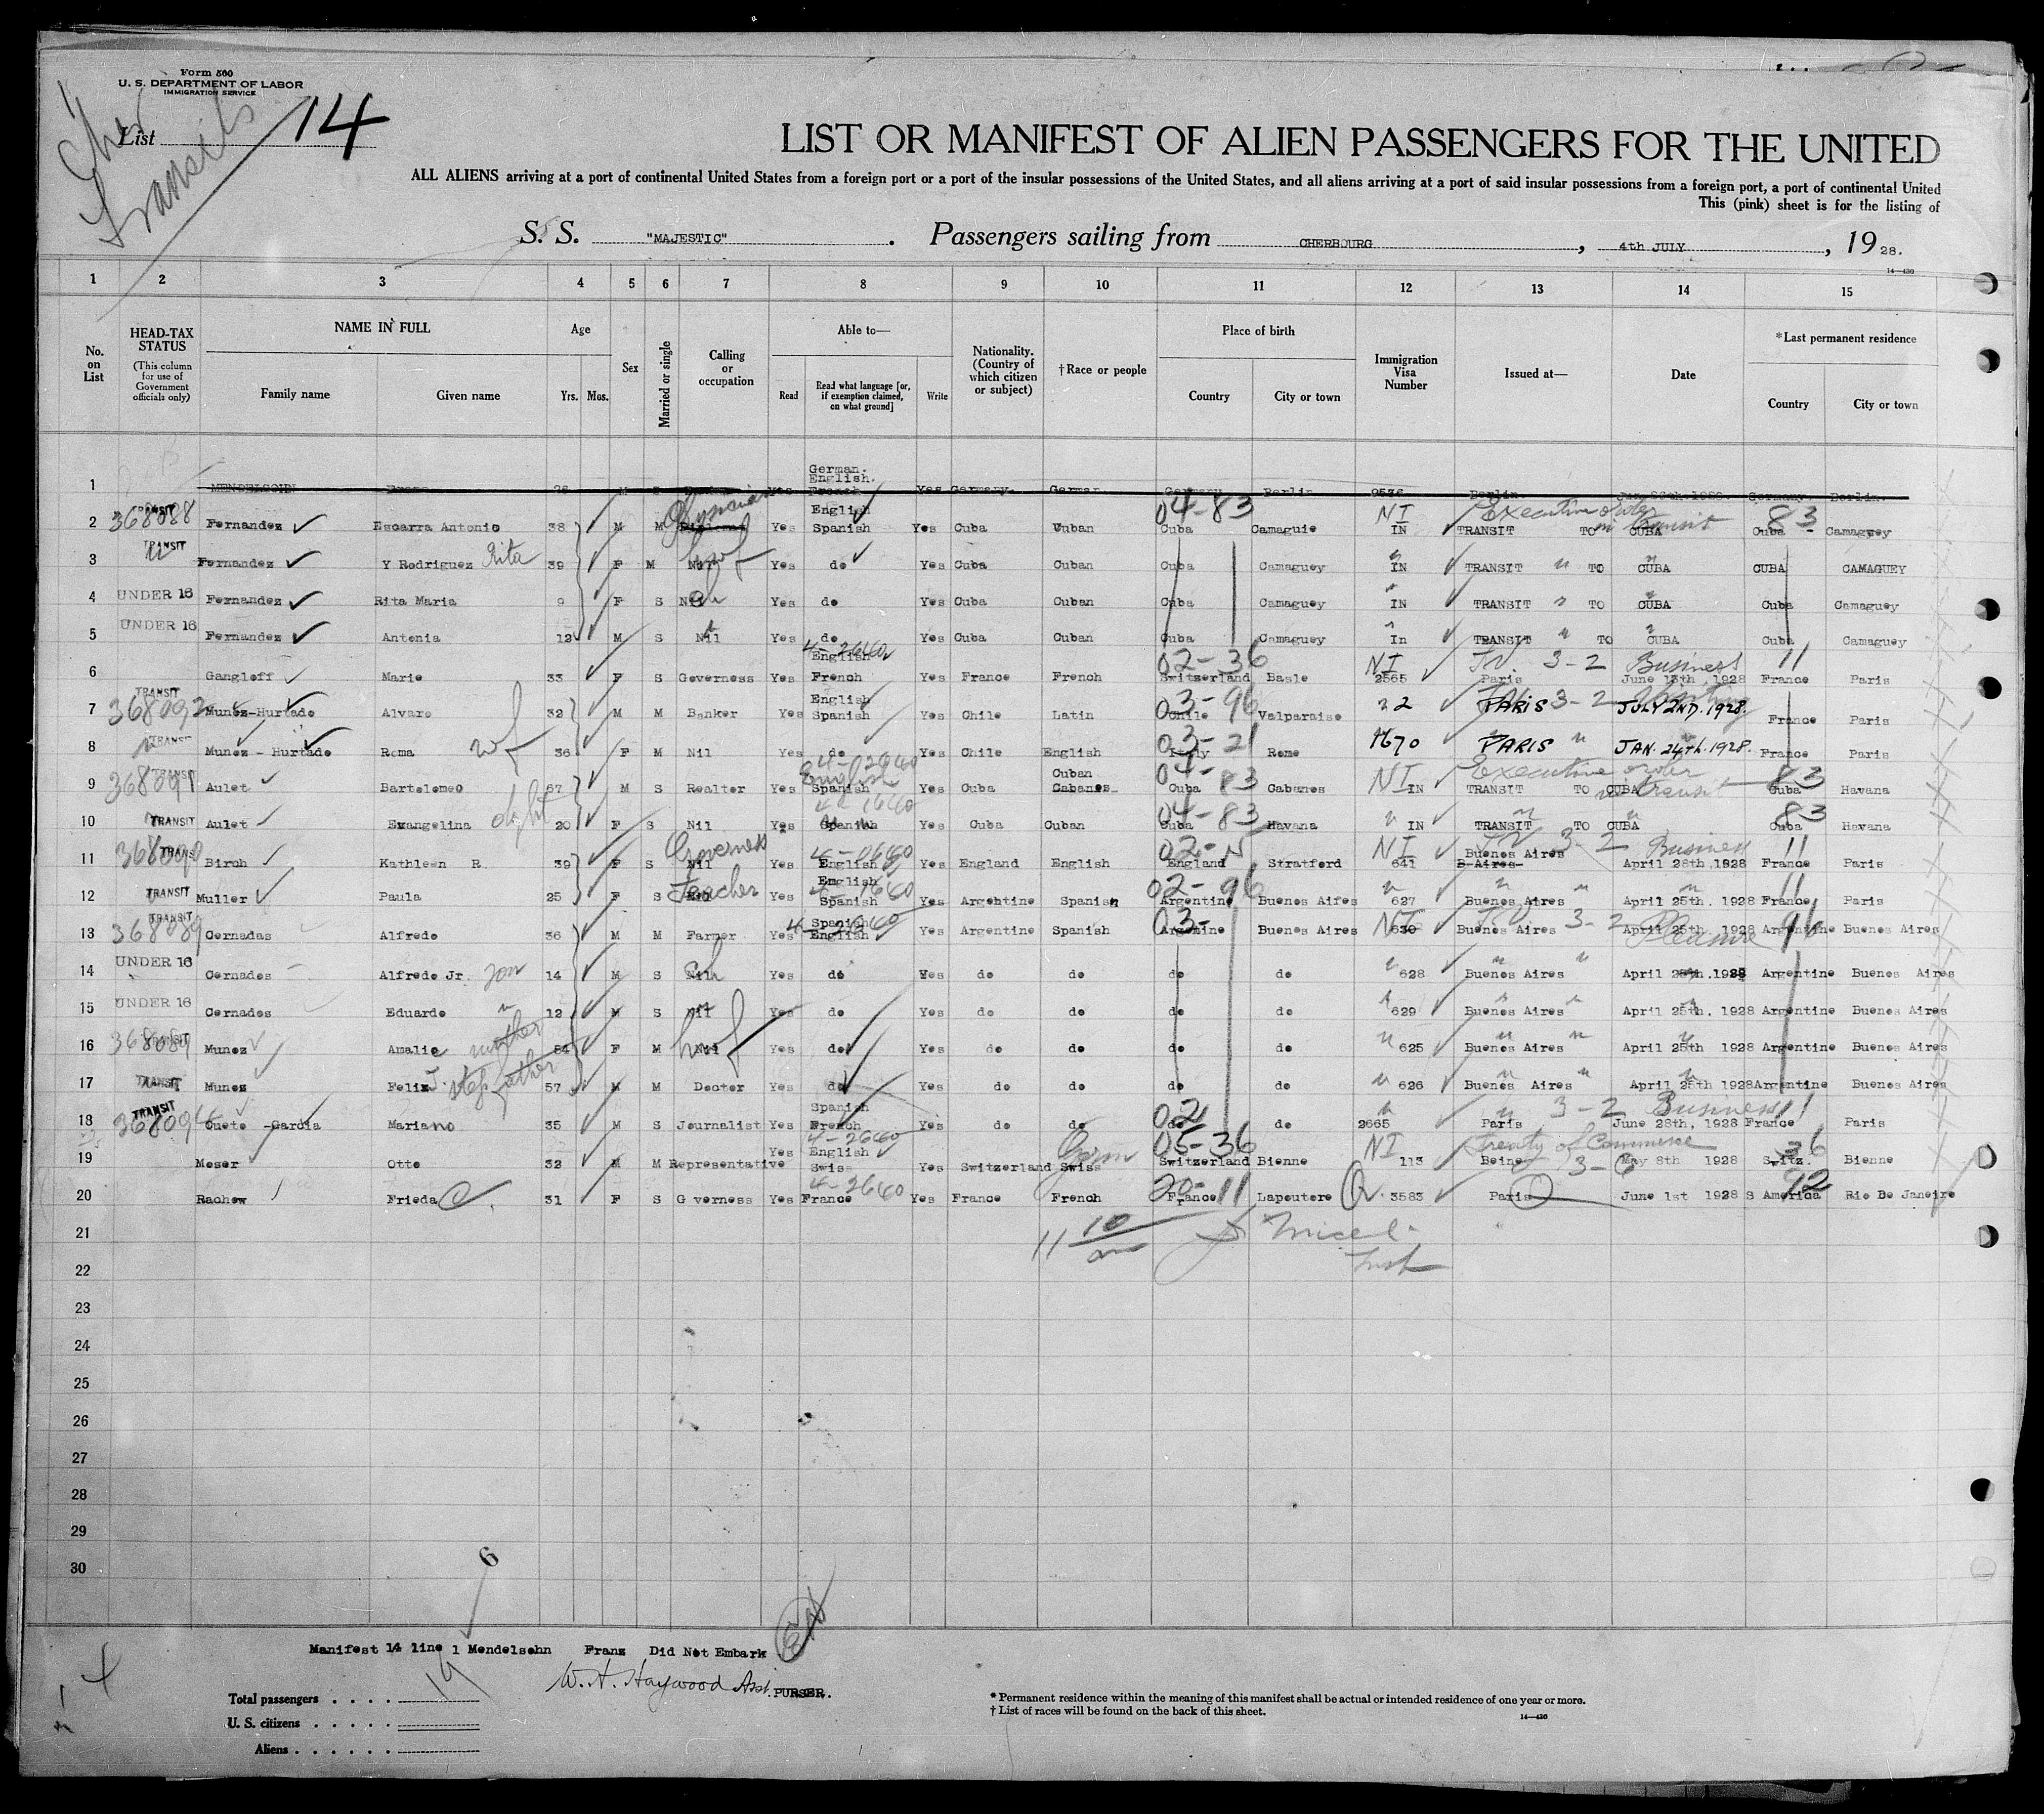 Form 500
U. S. DEPARTMENT OF LABOR
IMMIGRATION SERVICE
Cher
Transits
List 14
LIST OR MANIFEST OF ALIEN PASSENGERS FOR THE UNITED
ALL ALIENS arriving at a port of continental United States from a foreign port or a port of the insular possessions of the United States, and all aliens arriving at a port of said insular possessions from a foreign port, a port of continental United
This (pink) sheet is for the listing of
S. S. "MAJESTIC". Passengers sailing from CHERBOURG, 4th JULY, 1928.
14—430
1 2 3 4 5 6 7 8 9 10 11 12 13 14 15
No. on List
HEAD-TAX STATUS
(This column for use of Government officials only)
NAME IN FULL
Family name Given name
Age
Yrs. Mos.
Sex
Married or single
Calling or occupation
Able to—
Read Read what language [or, if exemption claimed, on what ground] Write
Nationality. (Country of which citizen or subject)
†Race or people
Place of birth
Country City or town
Immigration Visa Number
Issued at—
Date
*Last permanent residence
Country City or town
1 MENDELSOHN 26 M S Yes German. English. French Yes Germany. German Germany Berlin 9536 Berlin Germany. Berlin.
2 368088 TRANSIT Fernandez Escarra Antonio 38 M M Physician Yes English Spanish Yes Cuba Cuban 04-83 Cuba Camaguie NI IN TRANSIT TO CUBA Executive order in transit 83 Cuba - Camaguey
3 TRANSIT Fernandez Y Rodriguez Rita 39 F M Nil Yes do Yes Cuba Cuban Cuba Camaguey IN TRANSIT " TO CUBA CUBA CAMAGUEY
4 UNDER 16 Fernandez Rita Maria 9 F S Nil Yes do Yes Cuba Cuban Cuba Camaguey IN TRANSIT TO CUBA Cuba Camaguey
5 UNDER 16 Fernandez Antonia 12 M S Nil Yes do Yes Cuba Cuban Cuba Camaguey In TRANSIT " TO CUBA Cuba Camaguey
6 Gangloff Marie 33 F S Governess Yes 4-2640 English French Yes France French 02-36 Switzerland Basle NI 2565 T.V. 3-2 Paris Business June 13th. 1928 11 France Paris
7 368092 TRANSIT Munoz-Hurtado Alvaro 32 M M Banker Yes English Spanish Yes Chile Latin 03-96 Chile Valparaiso 22 PARIS 3-2 JULY 2ND. 1928. France Paris
8 TRANSIT Munoz - Hurtado Roma wf 36 F M Nil Yes do Yes Chile English 03-21 Italy Rome 1670 PARIS " JAN. 24th. 1928. France Paris
9 368091 TRANSIT Aulet Bartolomeo 67 M S Realter Yes English Spanish Yes Cuba Cuban Cabanes 04-83 Cuba Cabanes NI IN TRANSIT TO CUBA Executive order in transit 83 Cuba Havana
10 TRANSIT Aulet Evangelina 20 F S Nil Yes 4-1640 Spanish Yes Cuba Cuban 04-83 Cuba Havana " IN TRANSIT TO CUBA 83 Cuba Havana
11 368090 TRANSIT Birch Kathleen R. 39 F S Nil Governess Yes 4-0640 English Yes England English 02-N England Stratford NI 641 T.V. 3-2 Buenos Aires B-Aires- Business April 28th.1928 11 France Paris
12 TRANSIT Muller Paula 25 F S Teacher Yes English 4-1640 Spanish Yes Argentine Spanish 02-96 Argentine Buenos Aires " 627 Buenos Aires " April 25th. 1928 11 France Paris
13 368089 TRANSIT Cernadas Alfredo 36 M M Farmer Yes Spanish 4-2640 English Yes Argentine Spanish 03- Argentine Buenos Aires NI 630 T.V. 3-2 Buenos Aires Pleasure April 25th. 1928 96 Argentine Buenos Aires
14 UNDER 16 Cernados Alfredo Jr. son 14 M S Nil Yes do Yes do do do do " 628 Buenos Aires " April 28th.1928 Argentine Buenos Aires
15 UNDER 16 Cernados Eduardo " 12 M S Nil Yes do Yes do do do do " 629 Buenos Aires " April 25th. 1928 Argentine Buenos Aires
16 368089 TRANSIT Munoz Amalie mother 54 F M Nil Yes do Yes do do do do " 625 Buenos Aires " April 25th 1928 Argentine Buenos Aires
17 TRANSIT Munoz Felix J. step father 57 M M Doctor Yes do Yes do do do do " 626 Buenos Aires " April 25th 1928 Argentine Buenos Aires
18 TRANSIT Cueto -Garcia Mariano 35 M S Journalist Yes Spanish French Yes do do 02 do do " 2665 " 3-2 Paris Business June 28th, 1928 11 France Paris
19 Moser Otto 32 M M Representative Yes 4-2640 English Swiss Yes Switzerland Swiss Germ 05-36 Switzerland Bienne NI 113 Treaty of Commerce Beine 3- May 8th 1928 36 Switz. Bienne
20 Rachow Frieda 31 F S G verness Yes 4-2640 France Yes France French 20-11 France Lapoutere 3583 Paris June 1st 1928 92 S America Rio De Janeiro
21 11 10/am
22
23
24
25
26
27
28
29
30
6
Manifest 14 line 1 Mendelsohn Franz Did Not Embark
W. H. Haywood Asst. PURSER.
Total passengers . . . . 19
U. S. citizens . . . . .
Aliens . . . . . .
* Permanent residence within the meaning of this manifest shall be actual or intended residence of one year or more.
† List of races will be found on the back of this sheet.
14—430